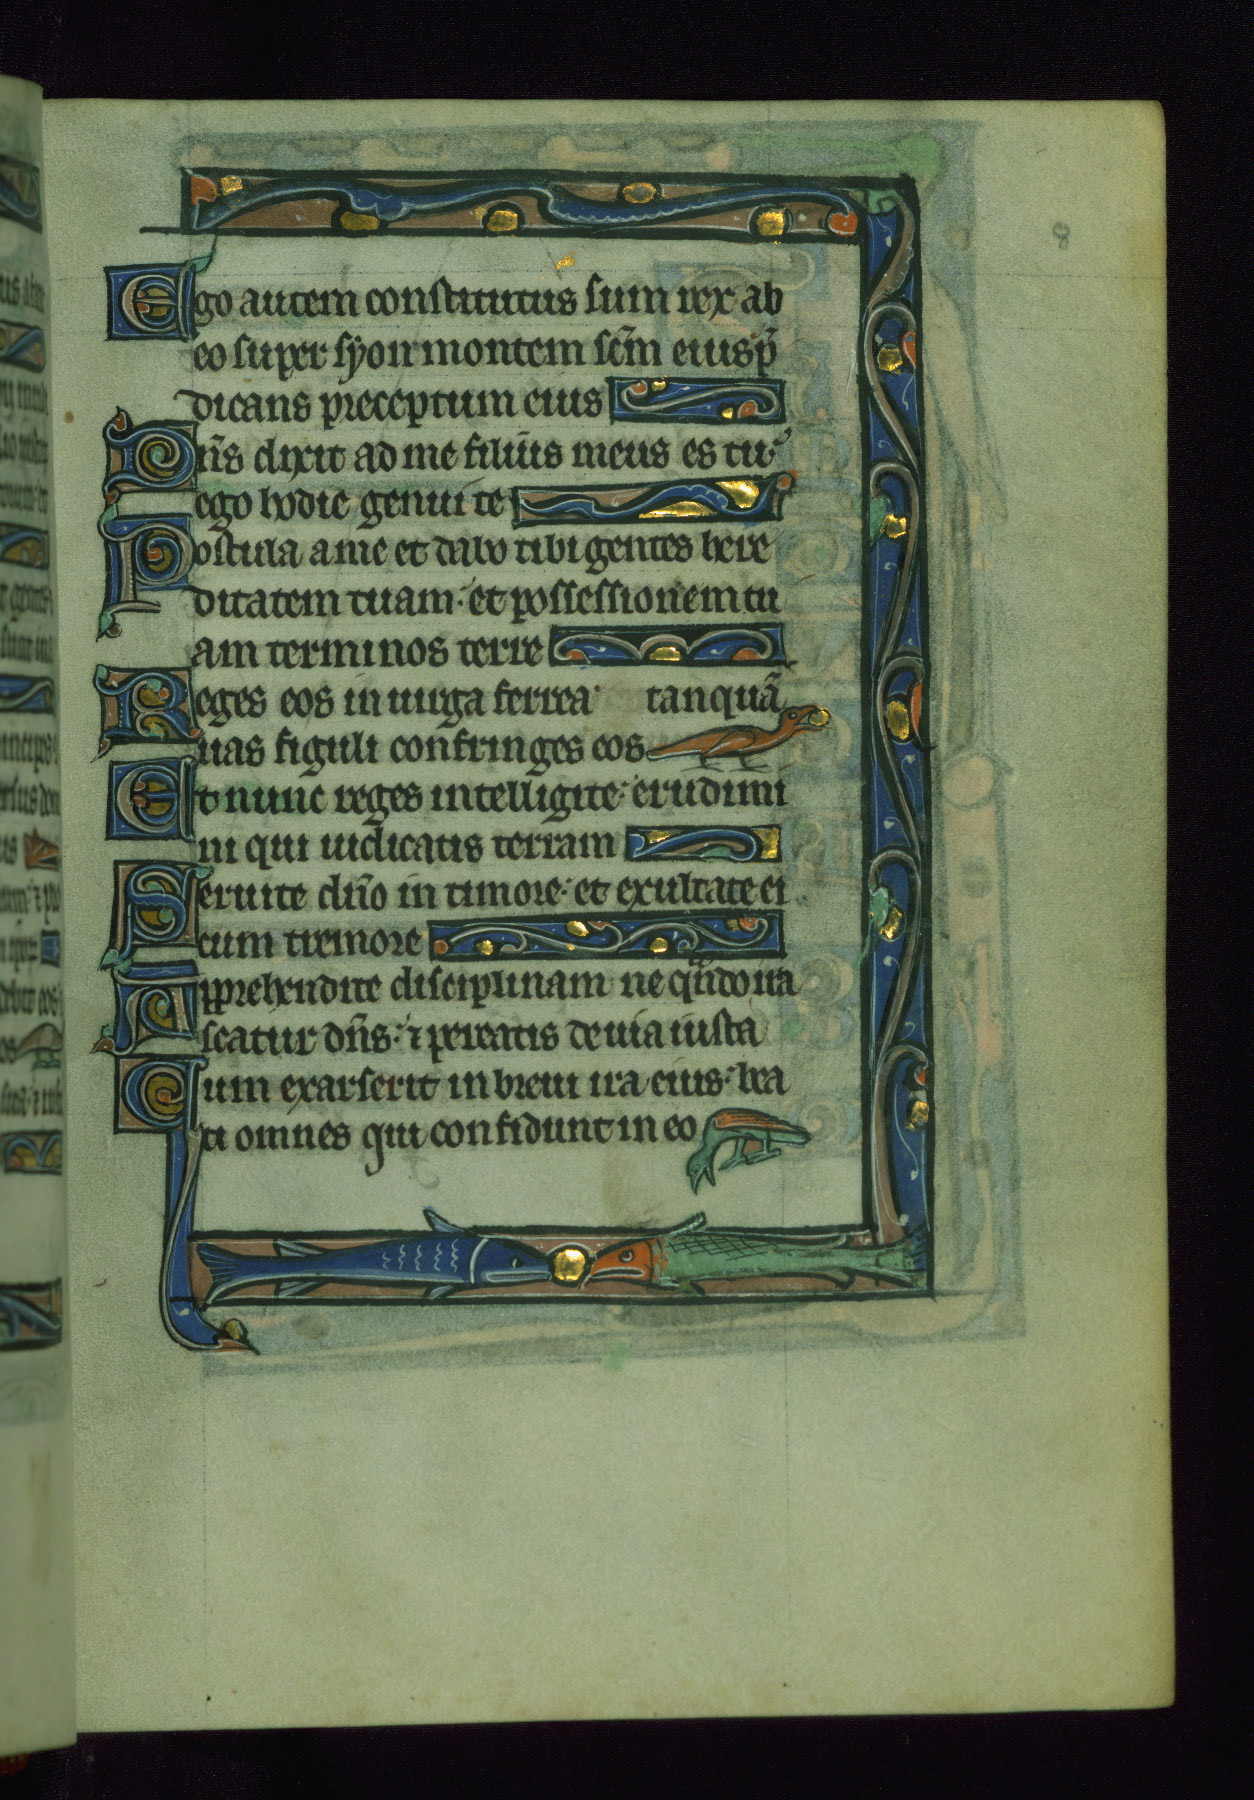 8
Ego autem constitutus sum rex ab
eo super syon montem scm̄ eius p̄
dicans preceptum eius
Dn̄s dixit ad me filius meus es tu
ego hodie genui te
Postula a me et dabo tibi gentes here
ditatem tuam · et possessionem tu
am terminos terre
Reges eos in uirga ferrea tanquā
uas figuli confringes eos
Et nunc reges intelligite · erudimi
ni qui iudicatis terram
Seruite dn̄o in timore · et exultate ei
cum tremore
Apprehendite disciplinam ne qn̄do ira
scatur dn̄s · ⁊ pereatis de uia iusta
Cum exarserit in breui ira eius · bea
ti omnes qui confidunt in eo